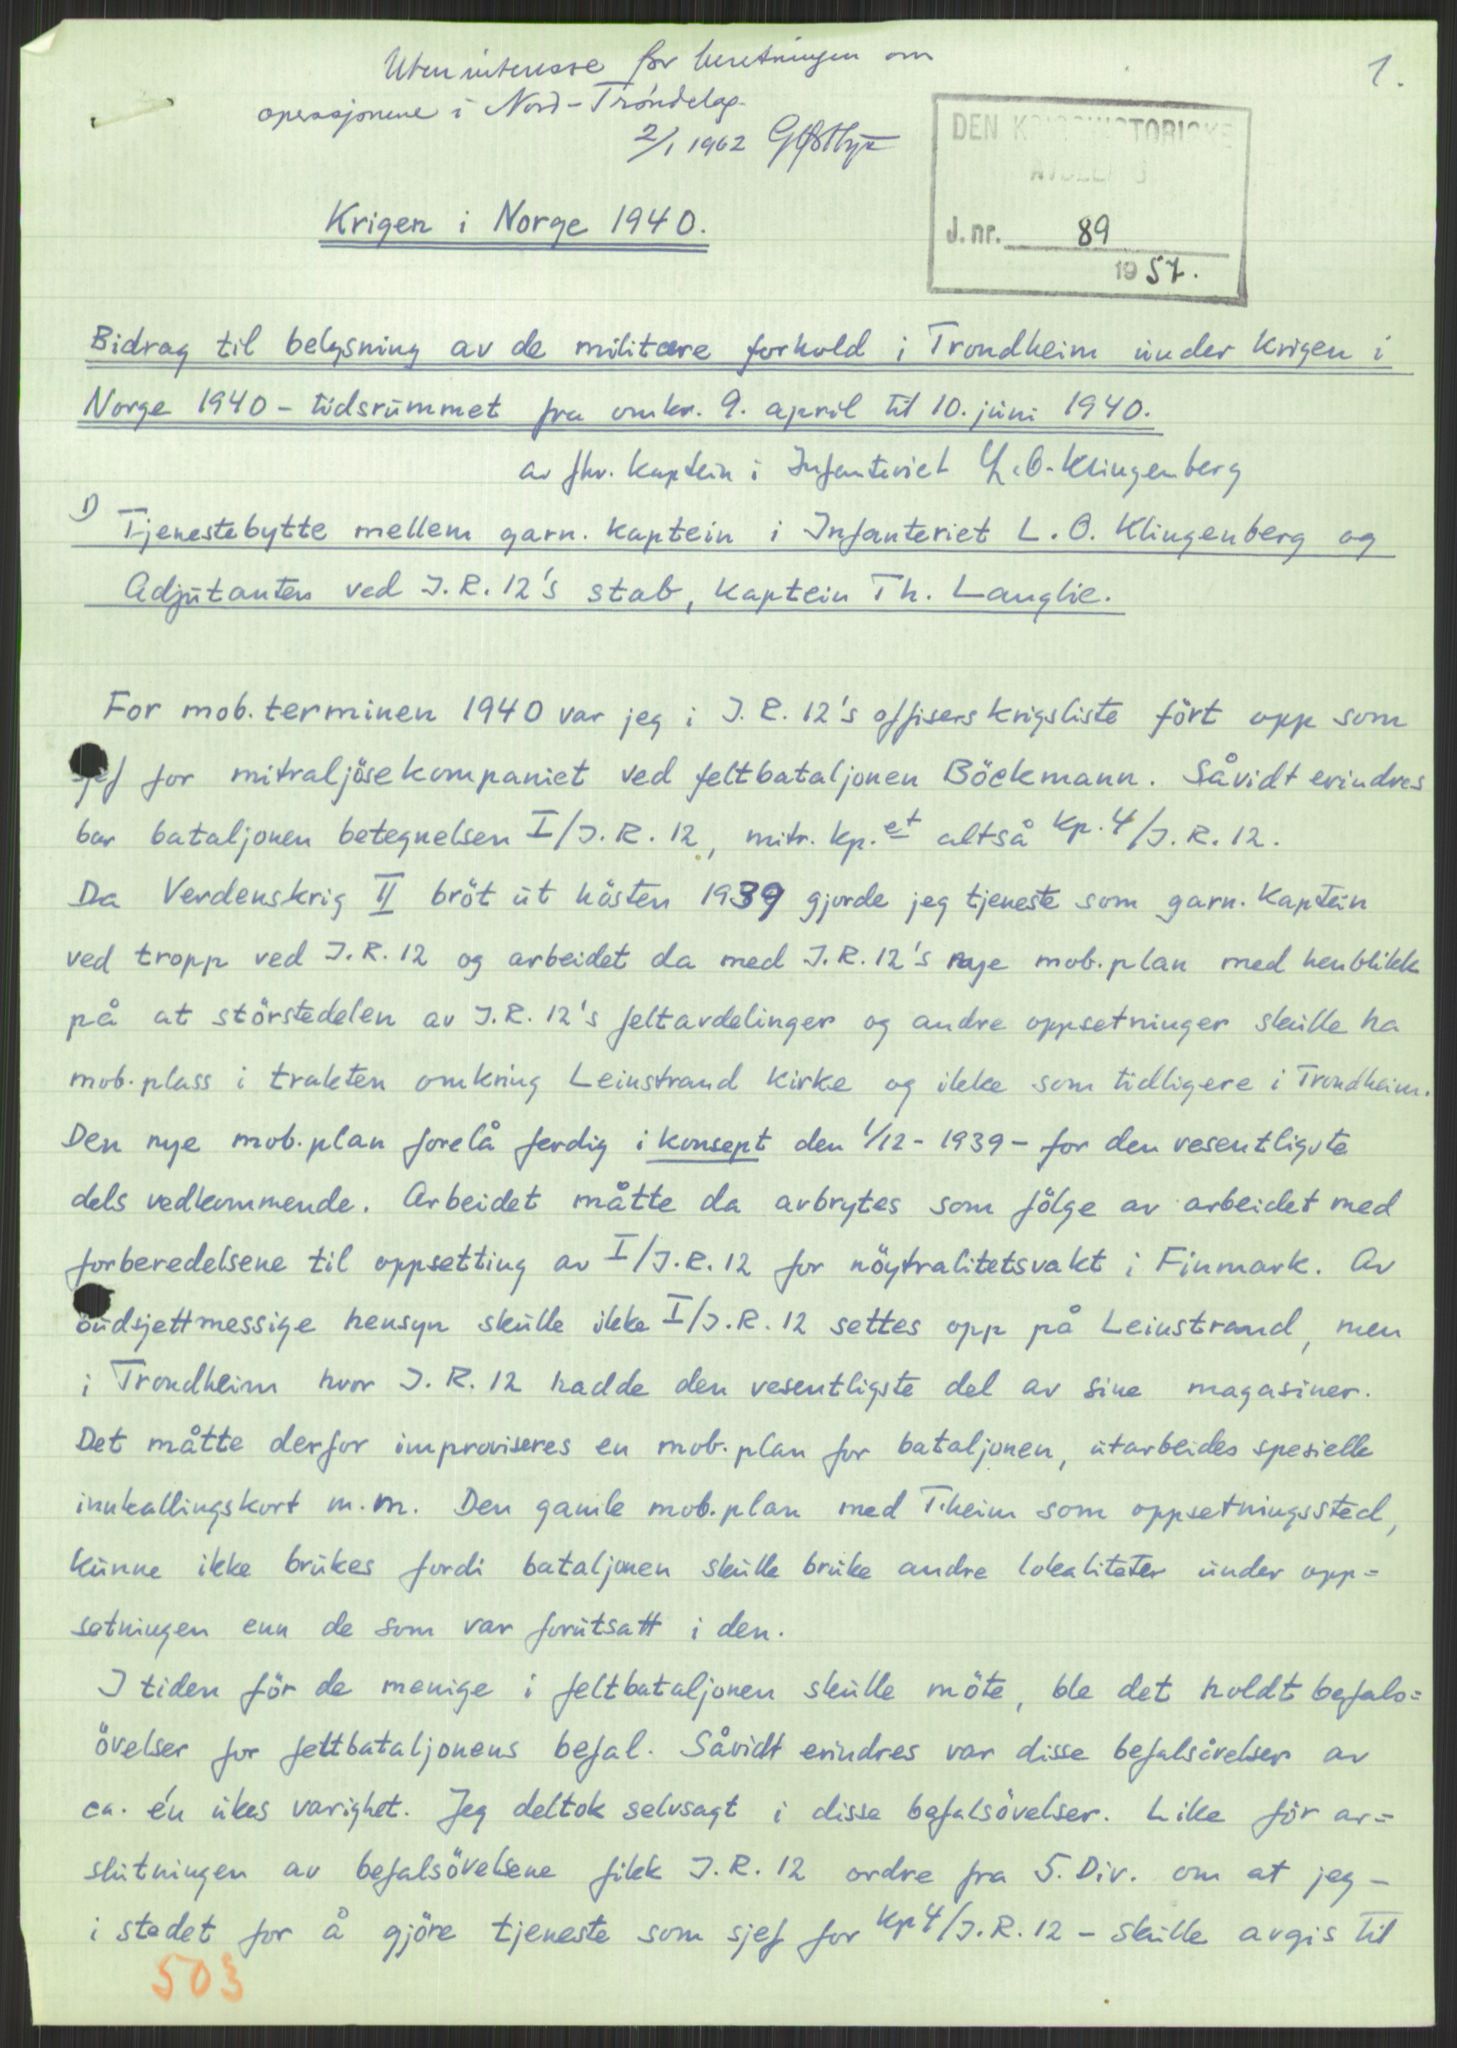 Uten interesse for beretningen om
operasjonene i Nord-Tröndelag.
2/1 1962
1.
DEN KRIGSHISTORISKE
AVDELING
J. nr. 89
1957.
Krigen i Norge 1940.
Bidrag til belysning av de militære forhold i Trondheim under krigen i
Norge 1940 - tidsrummet fra omkr. 9. april til 10. juni 1940.
av fhv. kaptein i Infanteriet L. O. Klingenberg
1) Tjenestebytte mellem garn. kaptein i Infanteriet L. O. Klingenberg og
Adjutanten ved J.R. 12's stab, kaptein Th. Langlie.
For mob. terminen 1940 var jeg i J.R. 12's offisers krigsliste fört opp som
sjef for mitraljösekompaniet ved feltbataljonen Böckmann. Såvidt erindres
bar bataljonen betegnelsen I/J.R. 12, mitr. kp.et altså Kp. 4/J.R. 12.
Da Verdenskrig II bröt ut hösten 1939 gjorde jeg tjeneste som garn. kaptein
ved tropp ved J.R. 12 og arbeidet da med J.R. 12's nye mob. plan med henblikk
på at störstedelen av J.R. 12's feltavdelinger og andre oppsetninger skulle ha
mob. plass i trakten omkring Leinstrand kirke og ikke som tidligere i Trondheim.
Den nye mob. plan forelå ferdig i konsept den 1/12 - 1939 - for den vesentligste
dels vedkommende. Arbeidet måtte da avbrytes som fölge av arbeidet med
forberedelsene til oppsetting av I/J.R. 12 for nöytralitetsvakt i Finmark. Av
budsjettmessige hensyn skulle ikke I/J.R. 12 settes opp på Leinstrand, men
i Trondheim hvor J.R. 12 hadde den vesentligste del av sine magasiner.
Det måtte derfor improviseres en mob. plan for bataljonen, utarbeides spesielle
innkallingskort m.m. Den gamle mob. plan med T.heim som oppsetningssted,
kunne ikke brukes fordi bataljonen skulle bruke andre lokaliteter under opp=
setningen enn de som var forutsatt i den.
I tiden för de menige i feltbataljonen skulle möte, ble det holdt befals=
övelser for feltbataljonens befal. Såvidt erindres var disse befalsövelser av
ca. én ukes varighet. Jeg deltok selvsagt i disse befalsövelser. Like för av=
slutningen av befalsövelsene fikk J.R. 12 ordre fra 5. Div. om at jeg -
i stedet for å gjöre tjeneste som sjef for Kp 4/J.R. 12 - skulle avgis til
503